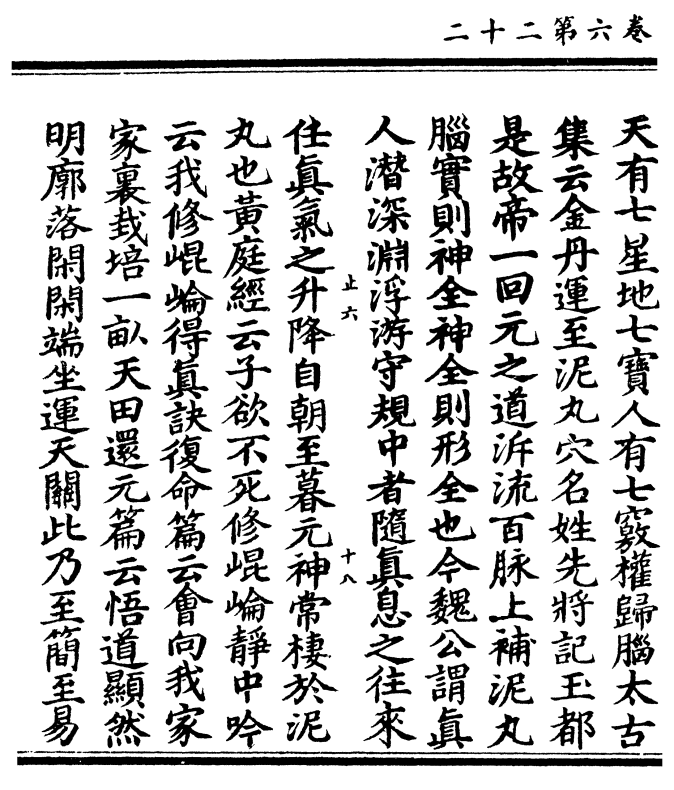 卷六第二十二
天有七星地七寶人有七竅權歸腦太古
集云金丹運至泥丸穴名姓先將記玉都
是故帝一回元之道泝流百脉上補泥丸
腦實則神全神全則形全也今魏公謂眞
人潛深淵浮游守規中者隨眞息之往來
止六 十八
任眞氣之升降自朝至暮元神常棲於泥
丸也黃庭經云子欲不死修崐崘靜中吟
云我修崐崘得眞訣復命篇云會向我家
家裏栽培一畝天田還元篇云悟道顯然
明廓落閑閑端坐運天關此乃至簡至易